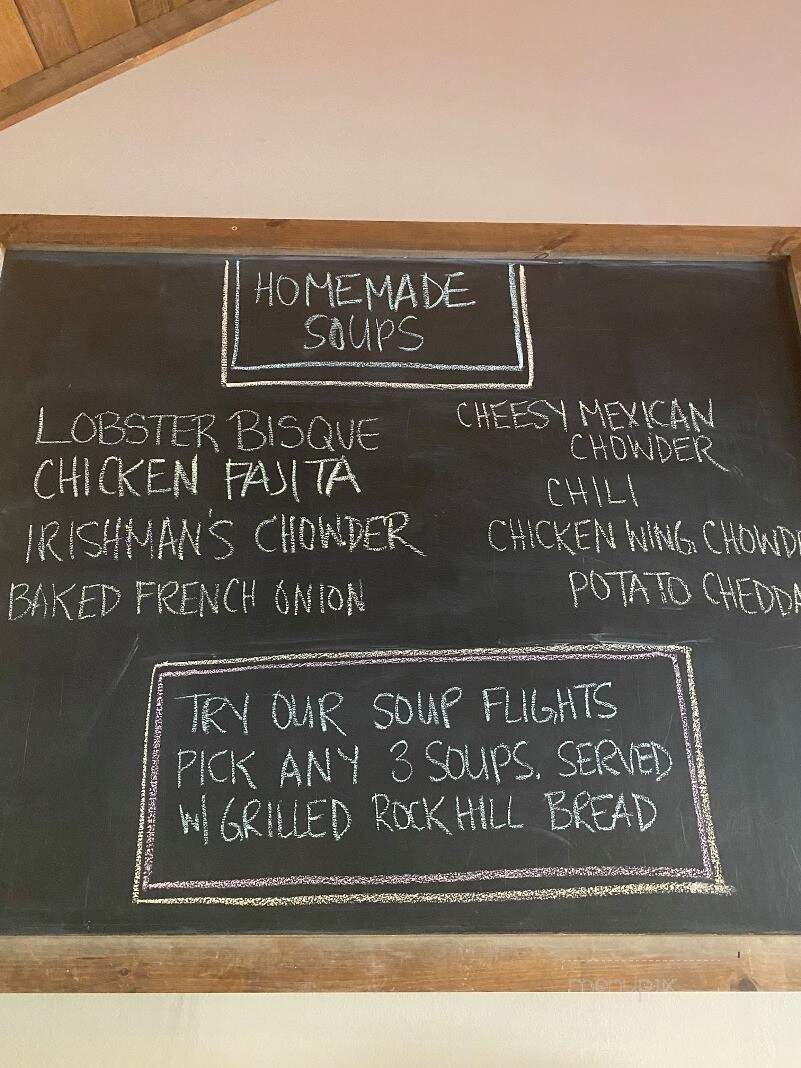 HOMEMADE
SOUPS
LOBSTER BISQUE
CHICKEN FAJITA
IRISHMAN'S CHOWDER
BAKED FRENCH ONION
CHEESY MEXICAN
CHOWDER
CHILI
CHICKEN WING CHOWDE
POTATO CHEDDA
TRY OUR SOUP FLIGHTS
PICK ANY 3 SOUPS. SERVED
W/ GRILLED ROCK HILL BREAD
menupix